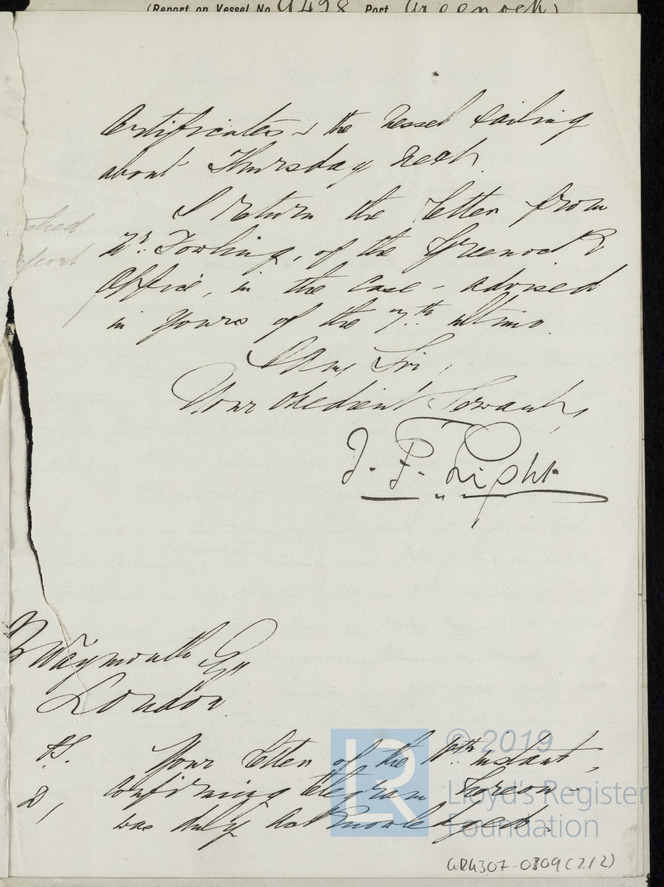 (Report on Vessel No 9498 Port Greenock)
Certificates & the Vessel sailing
about Thursday next.
I return the letter from
Mr. Dowling, of the Greenock
Office, in the case - advised
in yours of the 7th ultimo.
I Am, Sir,
Your obedient Servant,
J. F. Light
B Waymouth Esq
London.
P.S. Your letter of the instant,
confirming telegram thereon -
was duly acknowledged.
© 2019
LR
Lloyd's Register
Foundation
GRG307-0309 (2/2)